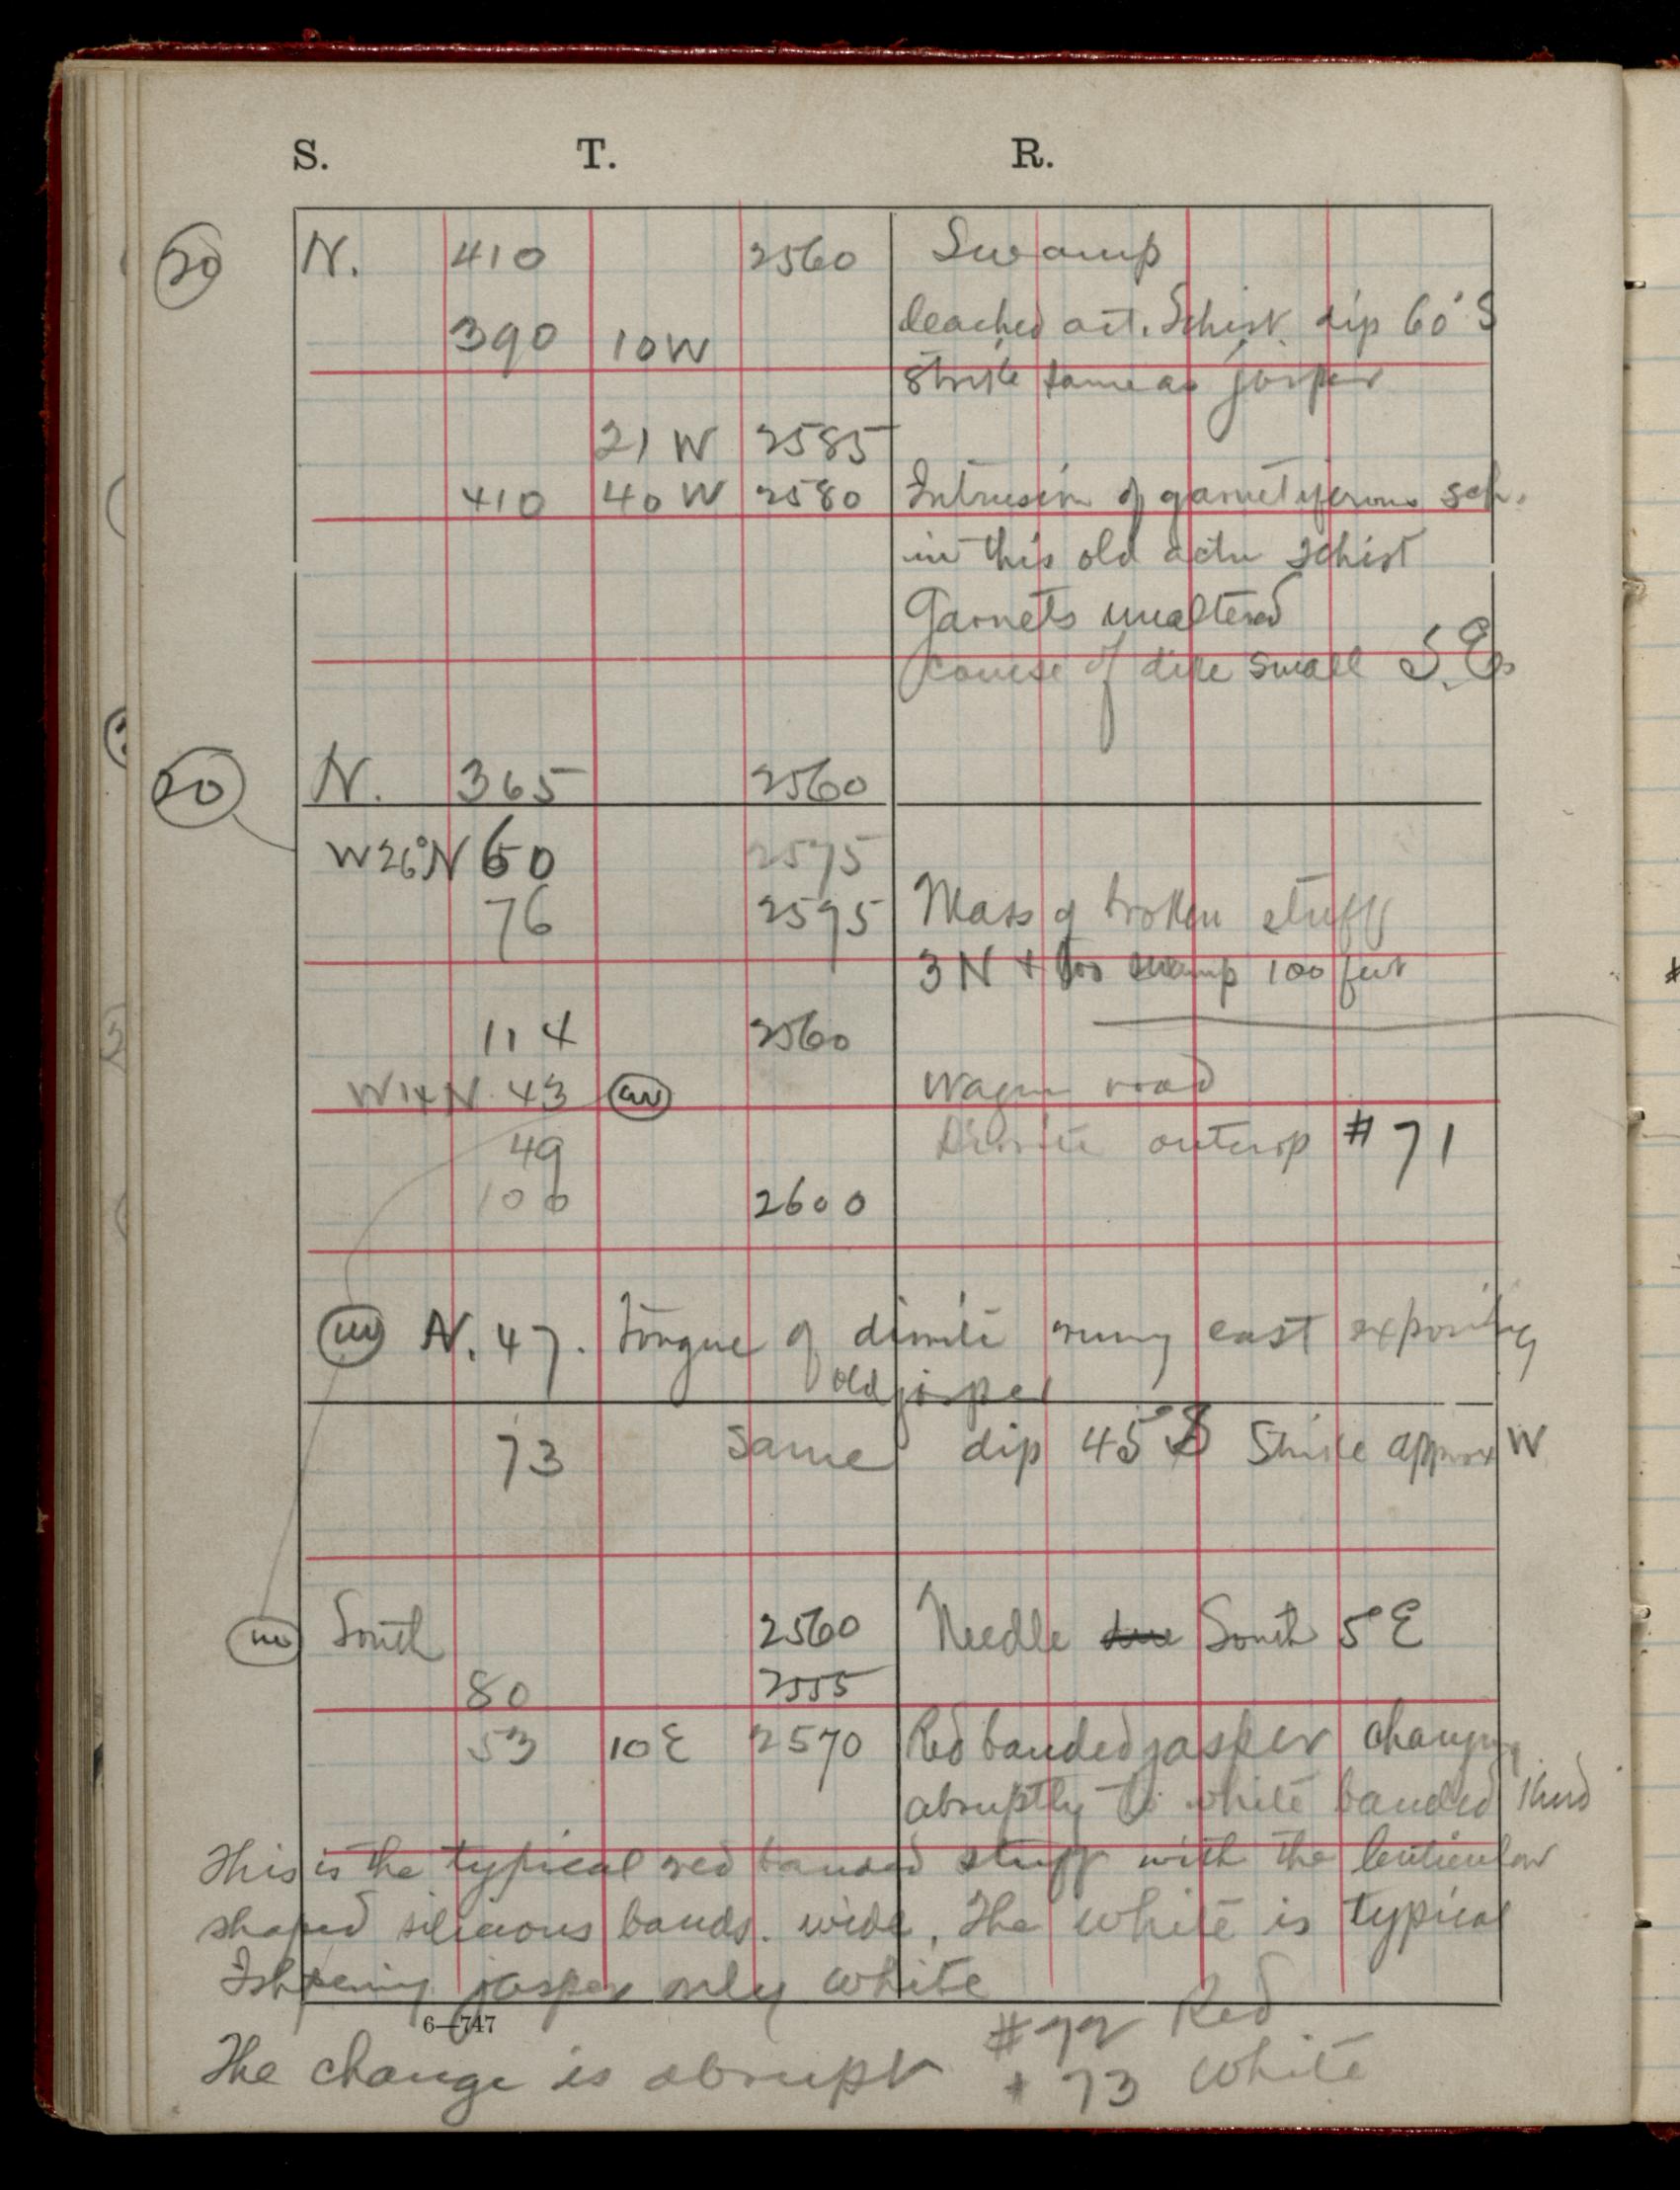 S. T. R.
20 N. 410 2560 Swamp
390 10W leached act. Schist dip 60° S
strike same as jasper
21 W 2585
410 40 W 2580 Intrusion of garnetiferous sch.
in this old actn schist
Garnets unaltered
course of dike small S.E.
20 N. 365 2560
W26°N 60 2575
76 2595 Mass of broken stuff
3 N + swamp 100 feet
114 2560
W14N 43 Wagon road
49 Diorite outcrop # 71
100 2600
N. 47. tongue of diorite runing east exposing
old jasper
73 Same dip 45° S Strike approx W
South 2560 Needle due South 5° E
80 2555
53 10E 2570 Red banded jasper changing
abruptly to white banded kind
This is the typical red banded stuff with the lenticular
shaped silicious bands. wide. The white is typical
Ishpeming jasper only white
6—747
# 72 Red
The change is abrupt + 73 White